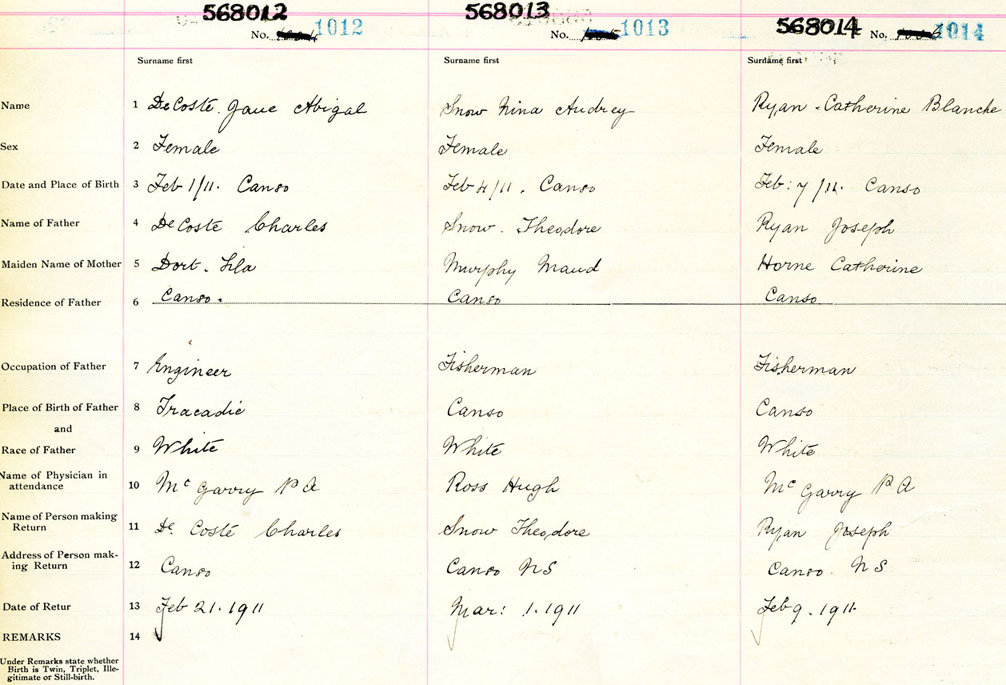 568012 568013 568014
No. 1012 No. 1013 No. 1014
Surname first Surname first Surname first
Name 1 DeCoste. Jane Abigal Snow Nina Audrey Ryan - Catherine Blanche
Sex 2 Female Female Female
Date and Place of Birth 3 Feb 1/11. Canso Feb 4/11. Canso Feb: 7/11. Canso
Name of Father 4 DeCoste Charles Snow. Theodore Ryan Joseph
Maiden Name of Mother 5 Dort. Murphy Maud Horne Catherine
Residence of Father 6 Canso. Canso Canso
Occupation of Father 7 Engineer Fisherman Fisherman
Place of Birth of Father 8 Tracadie Canso Canso
and
Race of Father 9 White White White
Name of Physician in
attendance 10 Mc Garry P A Ross Hugh Mc Garry P A
Name of Person making
Return 11 De Coste Charles Snow Theodore Ryan Joseph
Address of Person mak-
ing Return 12 Canso Canso N S Canso. N S
Date of Retur 13 Feb 21. 1911 Mar: 1. 1911 Feb 9. 1911
REMARKS 14
Under Remarks state whether
Birth is Twin, Triplet, Ille-
gitimate or Still-birth.